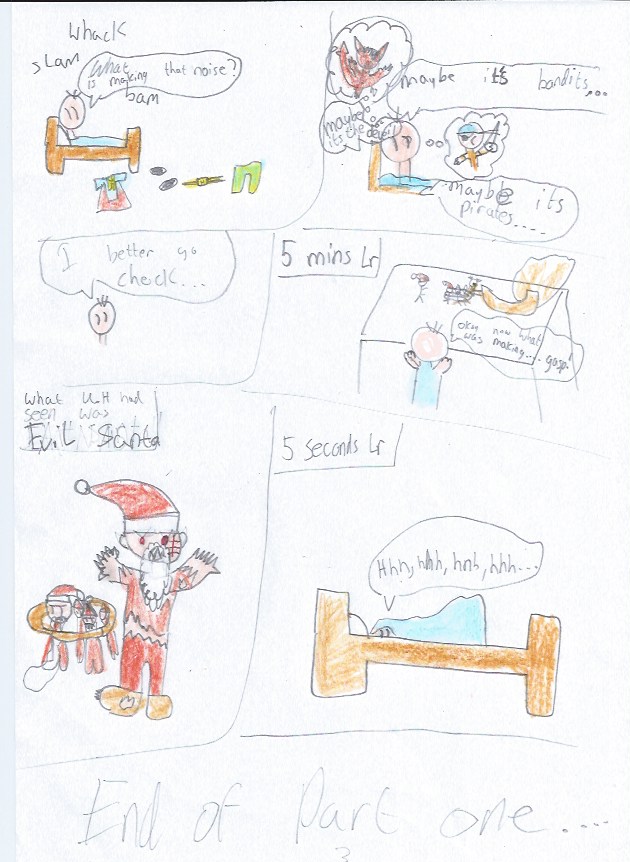 Whack
slam
What
is making that noise?
bam
maybe its bandits...
maybe
its the devil
maybe its
pirates....
I better go
check...
5 mins lr
okay now what
was making.... gasp!
What U.H had
seen was
Evil Santa
5 seconds lr
Hhh, hhh, hhh, hhh...
End of Part one....